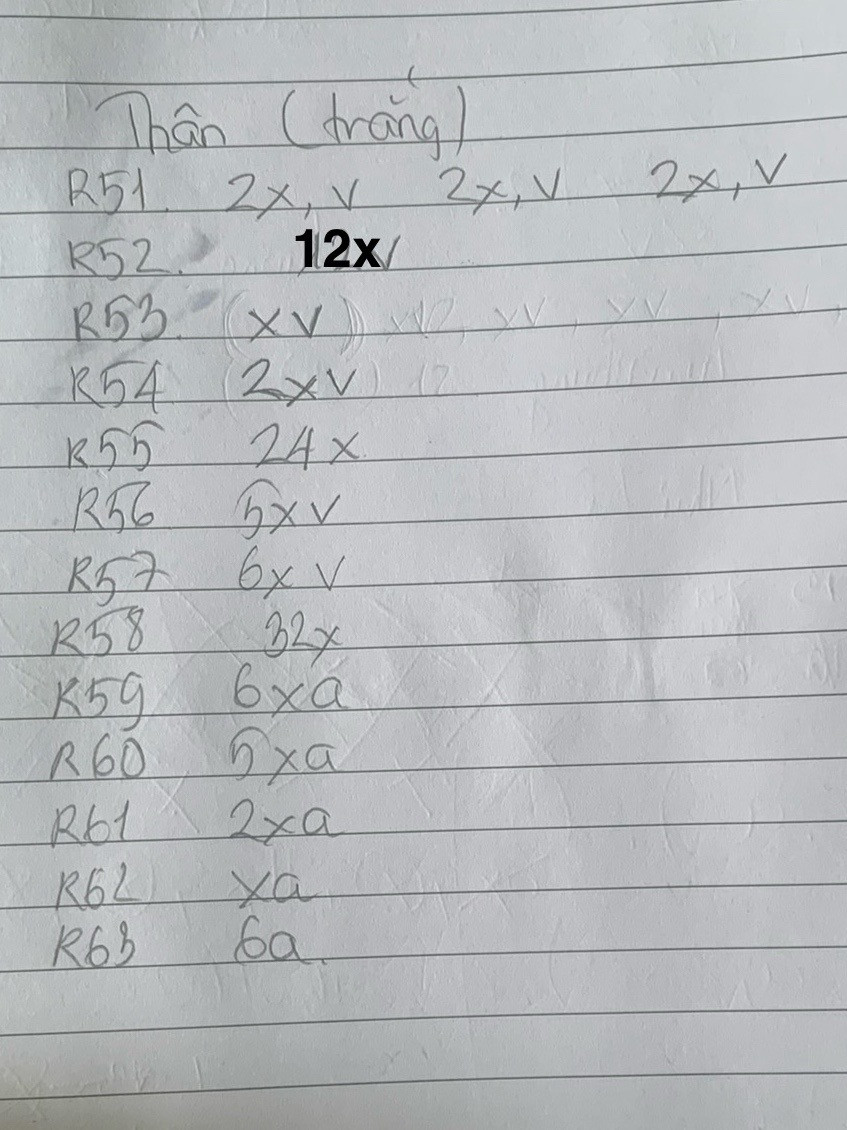 Thân (trắng)
R51. 2x, v 2x, v 2x, v
R52. 12x
R53. (xv)
R54 2xv
R55 24x
R56 5xv
R57 6xv
R58 32x
R59 6xa
R60 5xa
R61 2xa
R62 xa
R63 6a.